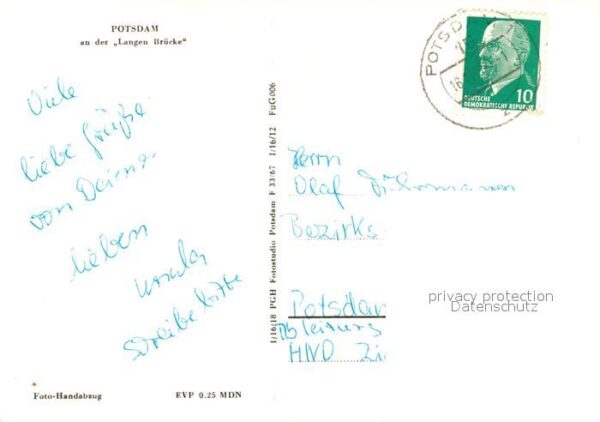 POTSDAM
an der „Langen Brücke“
Viele
liebe Grüße
von Deiner
lieben
Ursula
schreibe bitte
Foto-Handabzug
EVP 0,25 MDN
1/16/18 PGH Fotostudio Potsdam F 33/67 1/16/12 FuG 006
POTSD
10
DEUTSCHE
DEMOKRATISCHE REPUBLIK
Herrn
Olaf
Bezirks
Potsdam
Abteilung
HNO Zi
privacy protection
Datenschutz